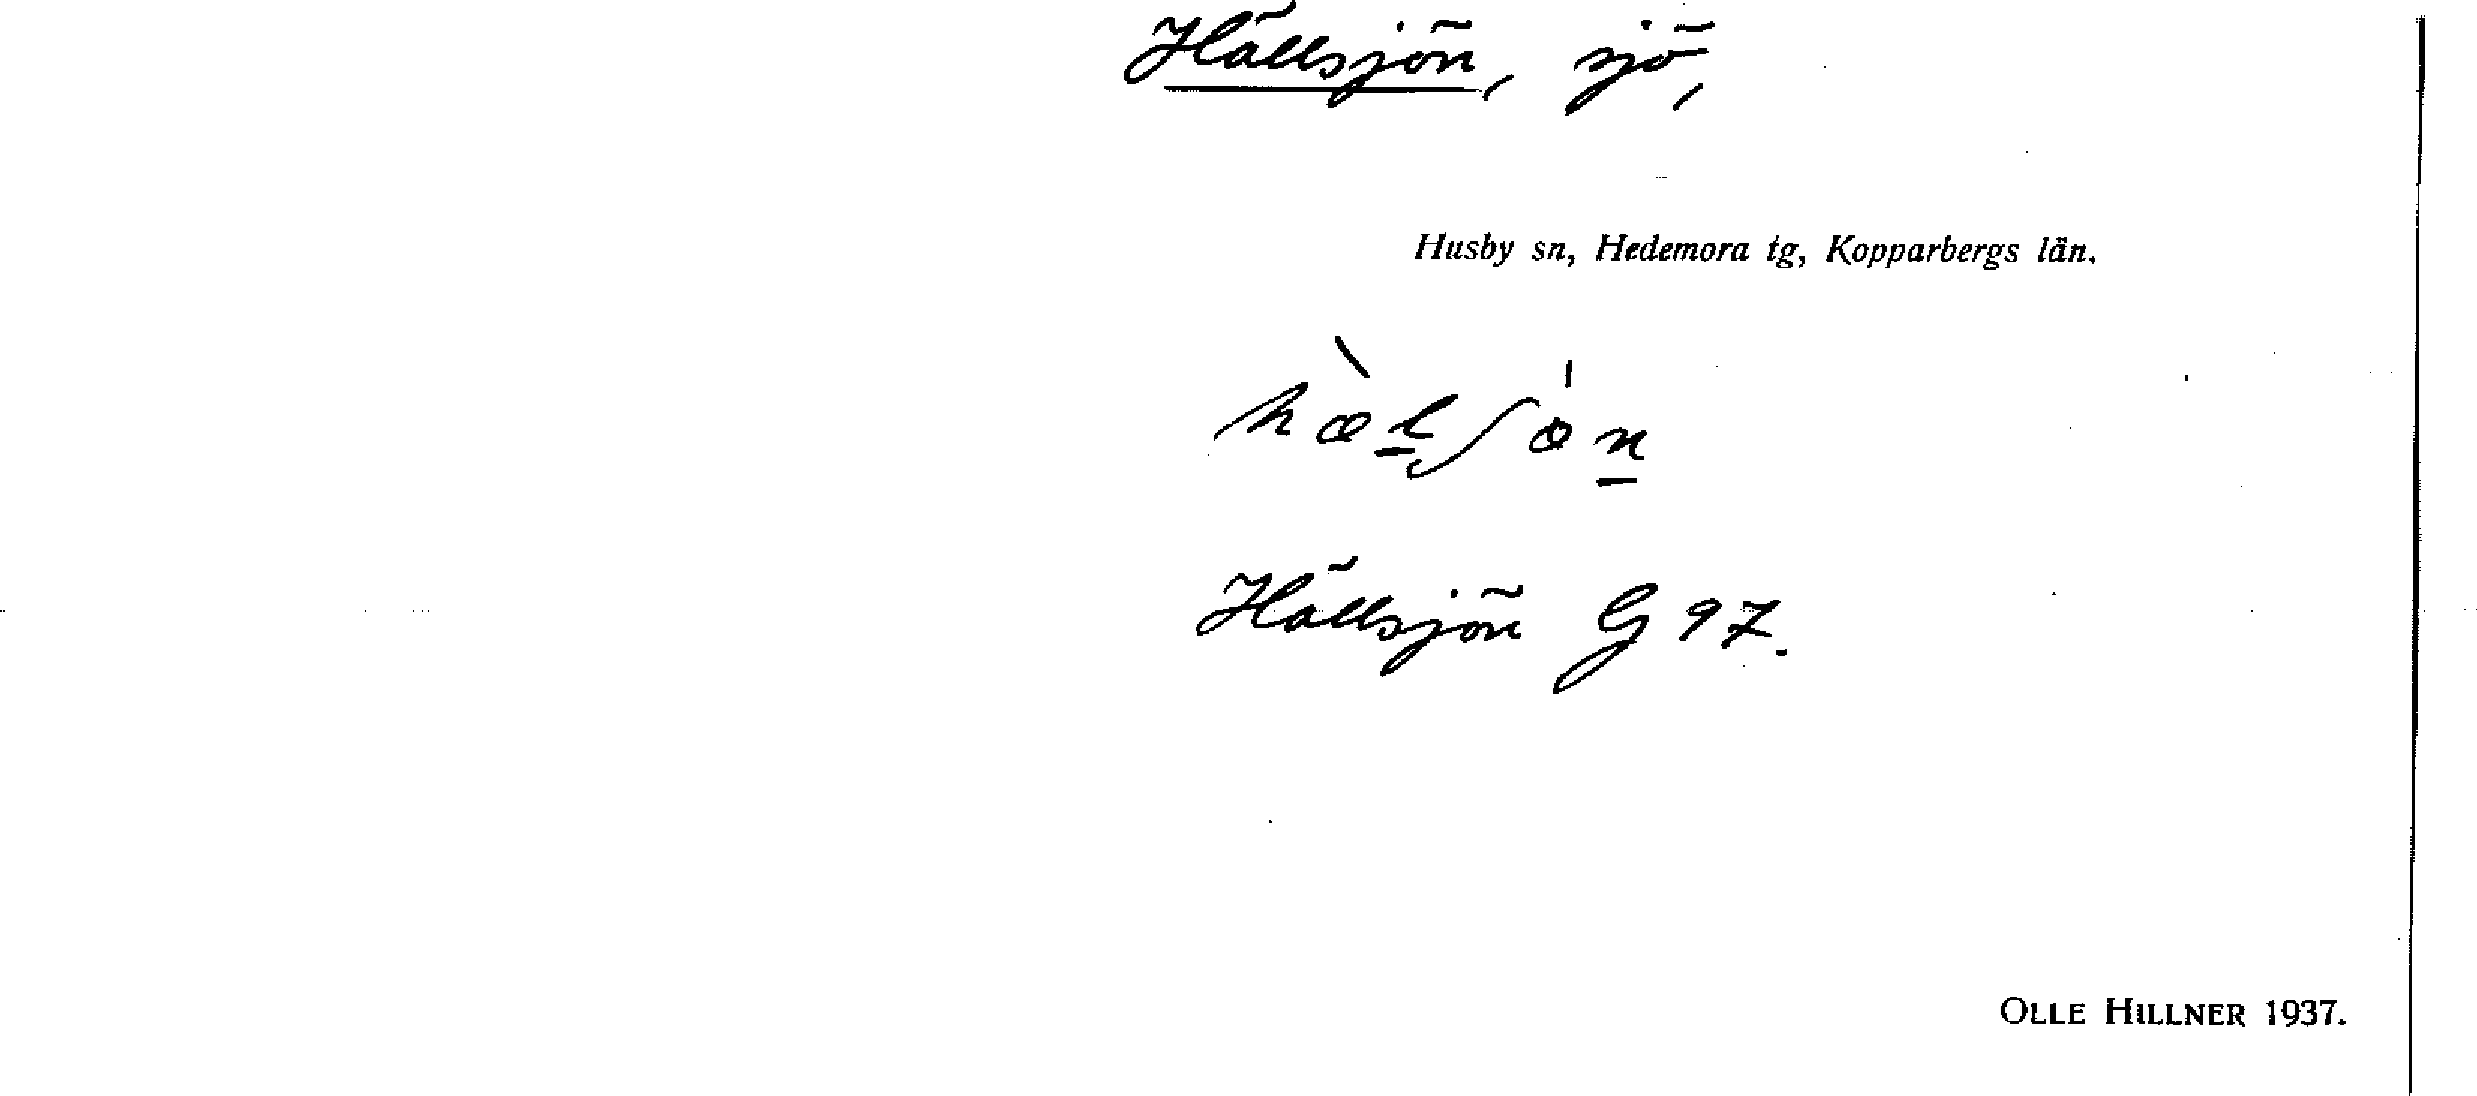 Hällsjön, sjö,
Husby sn, Hedemora tg, Kopparbergs län.
hæ̀lʃön
Hällsjön G 97.
OLLE HILLNER 1937.